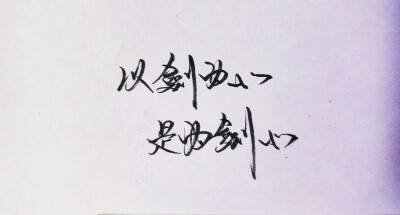 以剑为心
是为剑心